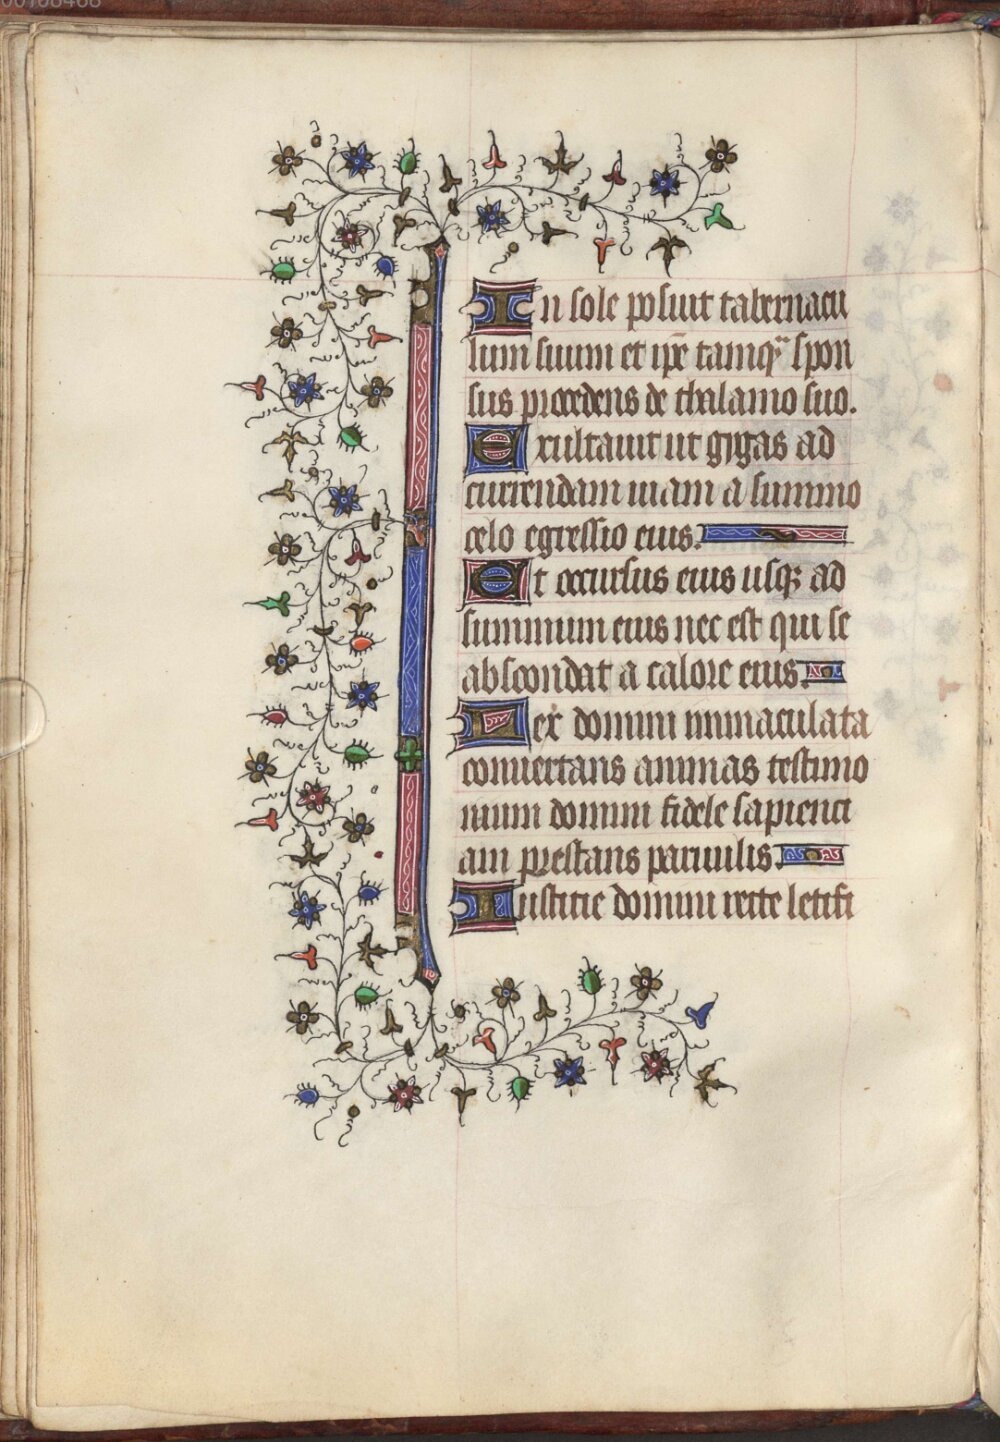 In sole posuit tabernacu
lum suum et ip̄e tamqᷓ spon
sus procedens de thalamo suo.
Exultauit ut gygas ad
currendam uiam a summo
celo egressio eius.
Et occursus eius usqꝫ ad
summum eius nec est qui se
abscondat a calore eius.
Lex domini immaculata
conuertans animas testimo
nium domini fidele sapienci
am prestans paruulis.
Iusticie domini recte letifi